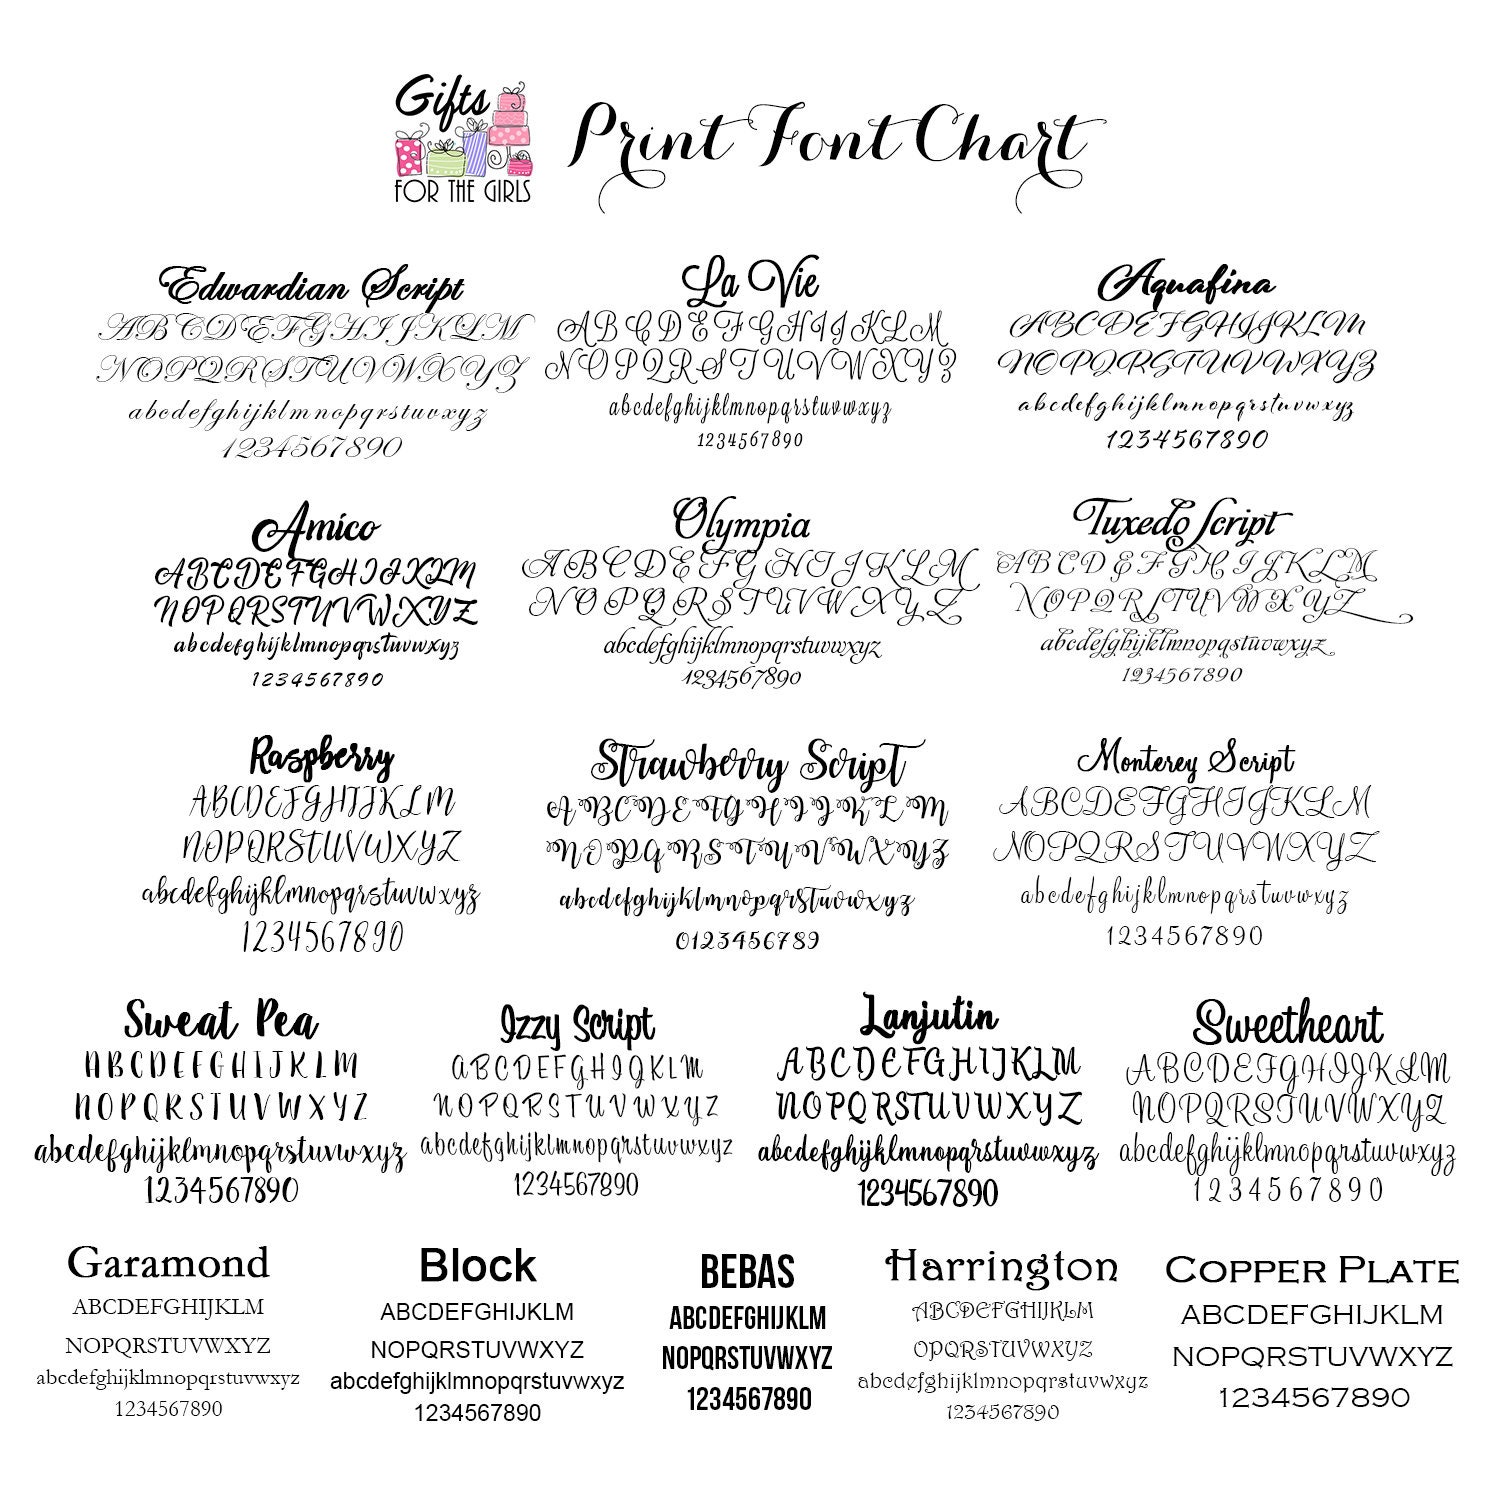 Gifts
FOR THE GIRLS
Print Font Chart
Edwardian Script
ABCDEFGHIJKLM
NOPQRSTUVWXYZ
abcdefghijklmnopqrstuvxyz
1234567890
La Vie
ABCDEFGHIJKLM
NOPQRSTUVWXYZ
abcdefghijklmnopqrstuvwxyz
1234567890
Aquafina
ABCDEFGHIJKLM
NOPQRSTUVWXYZ
abcdefghijklmnopqrstuvwxyz
1234567890
Amico
ABCDEFGHIJKLM
NOPQRSTUVWXYZ
abcdefghijklmnopqrstuvwxyz
1234567890
Olympia
ABCDEFGHIJKLM
NOPQRSTUVWXYZ
abcdefghijklmnopqrstuvwxyz
1234567890
Tuxedo Script
ABCDEFGHIJKLM
NOPQRSTUVWXYZ
abcdefghijklmnopqstuvwxyz
1234567890
Raspberry
ABCDEFGHIJKLM
NOPQRSTUVWXYZ
abcdefghijklmnopqrstuvwxyz
1234567890
Strawberry Script
ABCDEFGHIJKLM
NOPQRSTUVWXYZ
abcdefghijklmnopqrstuvwxyz
0123456789
Monterey Script
ABCDEFGHIJKLM
NOPQRSTUVWXYZ
abcdefghijklmnopqrstuvwxyz
1234567890
Sweat Pea
ABCDEFGHIJKLM
NOPQRSTUVWXYZ
abcdefghijklmnopqrstuvwxyz
1234567890
Izzy Script
ABCDEFGHIJKLM
NOPQRSTUVWXYZ
abcdefghijklmnopqrstuvwxyz
1234567890
Lanjutin
ABCDEFGHIJKLM
NOPQRSTUVWXYZ
abcdefghijklmnopqrstuvwxyz
1234567890
Sweetheart
ABCDEFGHIJKLM
NOPQRSTUVWXYZ
abcdefghijklmnopqrstuvwxyz
1234567890
Garamond
ABCDEFGHIJKLM
NOPQRSTUVWXYZ
abcdefghijklmnopqrstuvwxyz
1234567890
Block
ABCDEFGHIJKLM
NOPQRSTUVWXYZ
abcdefghijklmnopqrstuvwxyz
1234567890
BEBAS
ABCDEFGHIJKLM
NOPQRSTUVWXYZ
1234567890
Harrington
ABCDEFGHIJKLM
OPQRSTUVWXYZ
abcdefghijklmnopqrstuvwxyz
1234567890
COPPER PLATE
ABCDEFGHIJKLM
NOPQRSTUVWXYZ
1234567890